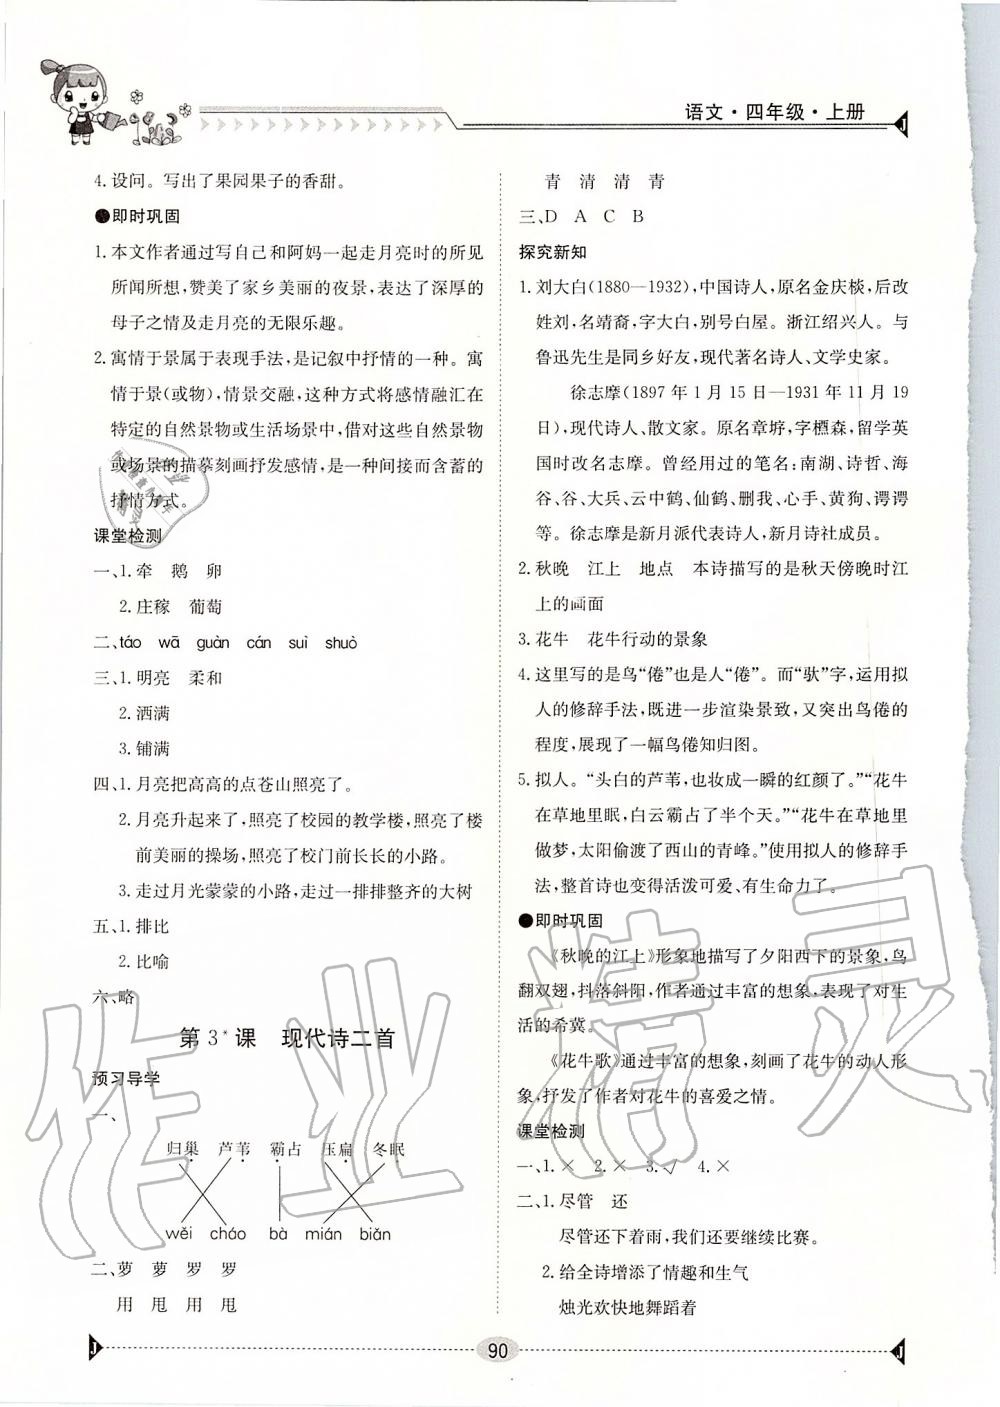 语文·四年级·上册
4. 设问。写出了果园果子的香甜。
●即时巩固
1. 本文作者通过写自己和阿妈一起走月亮时的所见
所闻所想，赞美了家乡美丽的夜景，表达了深厚的
母子之情及走月亮的无限乐趣。
2. 寓情于景属于表现手法，是记叙中抒情的一种。寓
情于景（或物），情景交融，这种方式将感情融汇在
特定的自然景物或生活场景中，借对这些自然景物
或场景的描摹刻画抒发感情，是一种间接而含蓄的
抒情方式。
课堂检测
一、1. 牵 鹅 卵
2. 庄稼 葡萄
二、táo wā guàn cán suì shuò
三、1. 明亮 柔和
2. 洒满
3. 铺满
四、1. 月亮把高高的点苍山照亮了。
2. 月亮升起来了，照亮了校园的教学楼，照亮了楼
前美丽的操场，照亮了校门前长长的小路。
3. 走过月光蒙蒙的小路，走过一排排整齐的大树
五、1. 排比
2. 比喻
六、略
第 3* 课 现代诗二首
预习导学
一、
归巢 芦苇 霸占 玉扁 冬眠
wěi cháo bà mián biǎn
二、萝 萝 罗 罗
用 甩 用 甩
青 清 清 青
三、D A C B
探究新知
1. 刘大白（1880—1932），中国诗人，原名金庆棪，后改
姓刘，名靖裔，字大白，别号白屋。浙江绍兴人。与
鲁迅先生是同乡好友，现代著名诗人、文学史家。
徐志摩（1897 年 1 月 15 日—1931 年 11 月 19
日），现代诗人、散文家。原名章垿，字槱森，留学英
国时改名志摩。曾经用过的笔名：南湖、诗哲、海
谷、谷、大兵、云中鹤、仙鹤、删我、心手、黄狗、谔谔
等。徐志摩是新月派代表诗人，新月诗社成员。
2. 秋晚 江上 地点 本诗描写的是秋天傍晚时江
上的画面
3. 花牛 花牛行动的景象
4. 这里写的是鸟“倦”也是人“倦”。而“驮”字，运用拟
人的修辞手法，既进一步渲染景致，又突出鸟倦的
程度，展现了一幅鸟倦知归图。
5. 拟人。“头白的芦苇，也妆成一瞬的红颜了。”“花牛
在草地里眠，白云霸占了半个天。”“花牛在草地里
做梦，太阳偷渡了西山的青峰。”使用拟人的修辞手
法，整首诗也变得活泼可爱、有生命力了。
●即时巩固
《秋晚的江上》形象地描写了夕阳西下的景象，鸟
翻双翅，抖落斜阳，作者通过丰富的想象，表现了对生
活的希冀。
《花牛歌》通过丰富的想象，刻画了花牛的动人形
象，抒发了作者对花牛的喜爱之情。
课堂检测
一、1. × 2. × 3. √ 4. ×
二、1. 尽管 还
尽管还下着雨，我们还要继续比赛。
2. 给全诗增添了情趣和生气
烛光欢快地舞蹈着
90
作业精灵